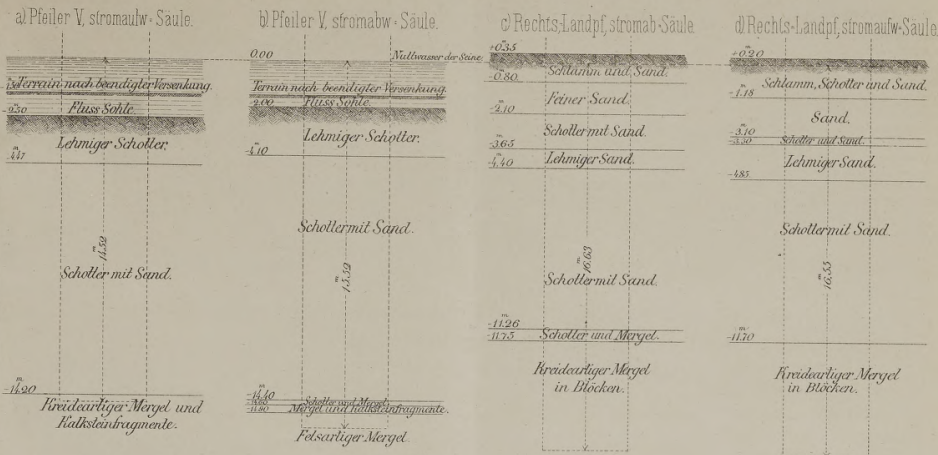 a) Pfeiler V, stromaufw-Säule.
Terrain nach beendigter Versenkung.
-2.30 Fluss Sohle.
Lehmiger Schotter.
-4.47
14.52
Schotter mit Sand.
-14.20
Kreideartiger Mergel und
Kalksteinfragmente.
b) Pfeiler V, stromabw-Säule.
0.00 Nullwasser der Seine
Terrain nach beendigter Versenkung.
-2.00 Fluss Sohle.
Lehmiger Schotter.
-4.10
Schotter mit Sand.
15.52
-14.40
Schotter und Mergel
-14.80 Mergel und Kalksteinfragmente.
Felsartiger Mergel
c) Rechts-Landpf, stromab-Säule
+0.35
Schlamm und Sand.
-0.80
Feiner Sand.
-2.10
Schotter mit Sand.
-3.65
Lehmiger Sand.
-4.40
16.63
Schotter mit Sand.
-11.26
Schotter und Mergel.
-11.75
Kreideartiger Mergel
in Blöcken.
d) Rechts-Landpf, stromaufw-Säule
+0.20
Schlamm, Schotter und Sand.
-1.18
Sand.
-3.10
Schotter und Sand.
-3.30
Lehmiger Sand.
-4.85
Schotter mit Sand.
16.55
-11.70
Kreideartiger Mergel
in Blöcken.